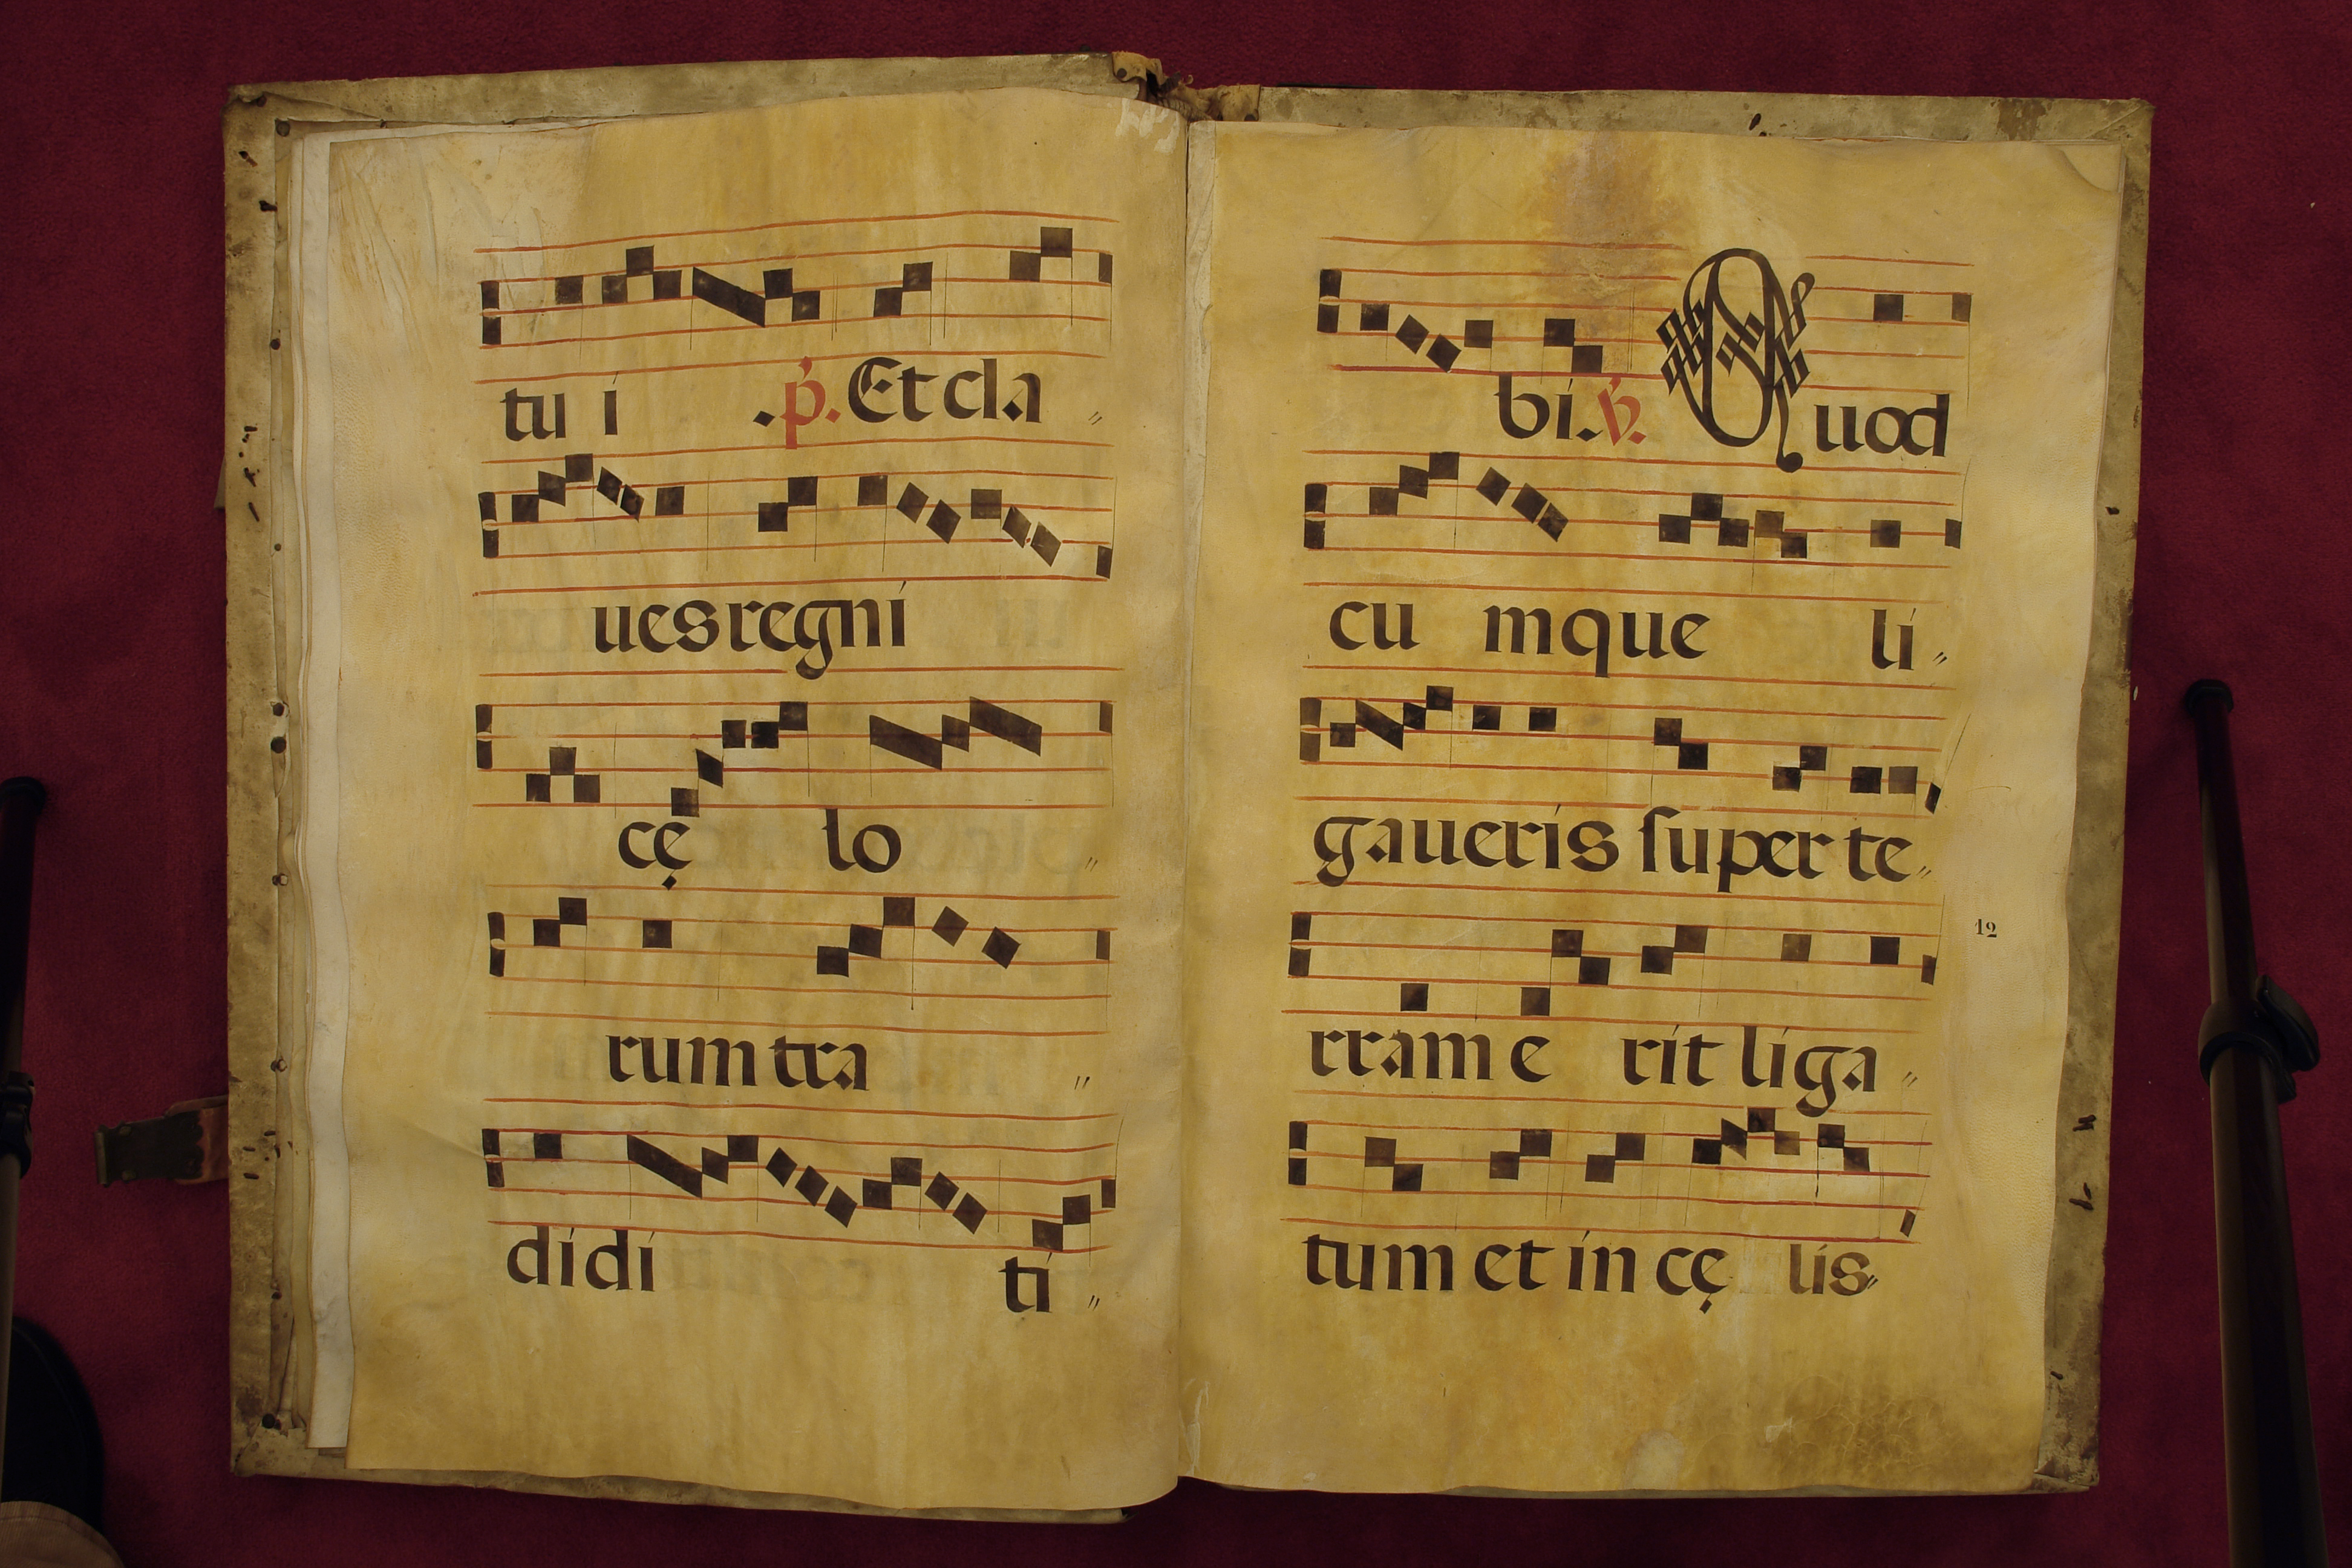 tu i .p̕. Et cla „
ues regni
cę lo „
rum tra „
didi ti „
bi. ꝟ. Quod
cu mque li „
gaueris ſuper te „
rram e rit liga „
12
tum et in cę lis „